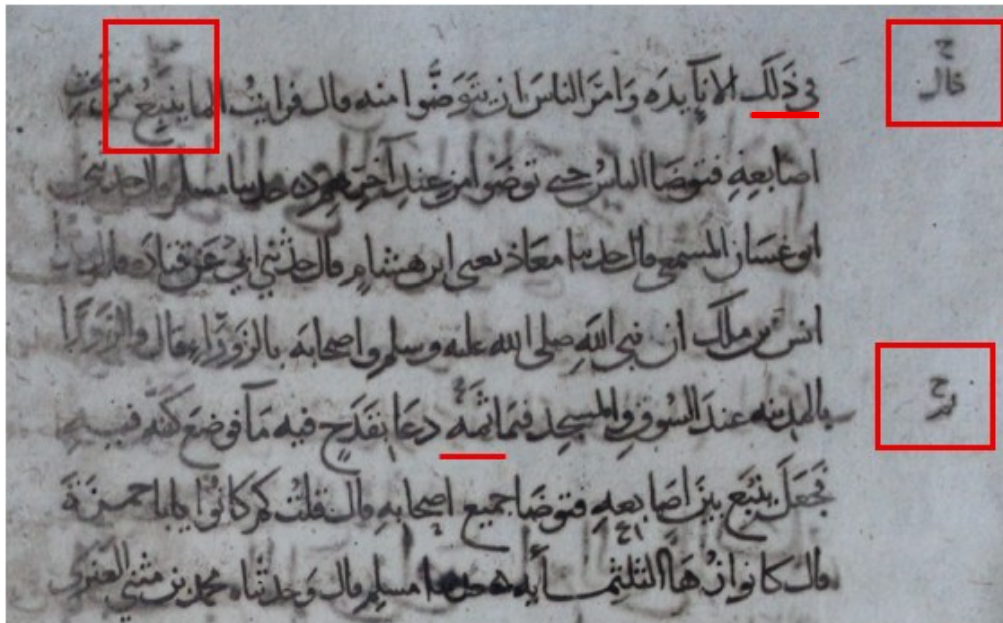 في ذَلَكَ الانَآيدَه وَامَرَ الناسَ ان يتَوَضَّوا منه قال فرايتُ الما ينبِعُ من تحت
اصابعِهِ فتوضا الناسُ حتى توضوا من عند آخرِهم حدثنا مسلم قال حدثني
ابو غسان المسمعي قال حدثنا معاذ يعني ابن هشام قال حدثني ابي عَن قتاده قال
انس بن ملك ان نبي اللَه صلى الله عليه وسلم واصحابَه بالزَورَآءِ قال والزَورَآ
بالمدينه عندَ السُوقِ والمسجدِ فيمَا ثمَهْ دعَا بقَدَحٍ فيه مَآ فوضعَ كفَه فيه
فجعَلَ ينبَع بينَ اصَابعِهِ فتوضَا جميع اصحابهِ قال قلتُ كم كانوا يابا حمزَةَ
قال كانوا زُهَآ الثلثمايه حدثنا مسلم قال وَحدثناه محمد بن مثني العنزي
ح
قال
ح